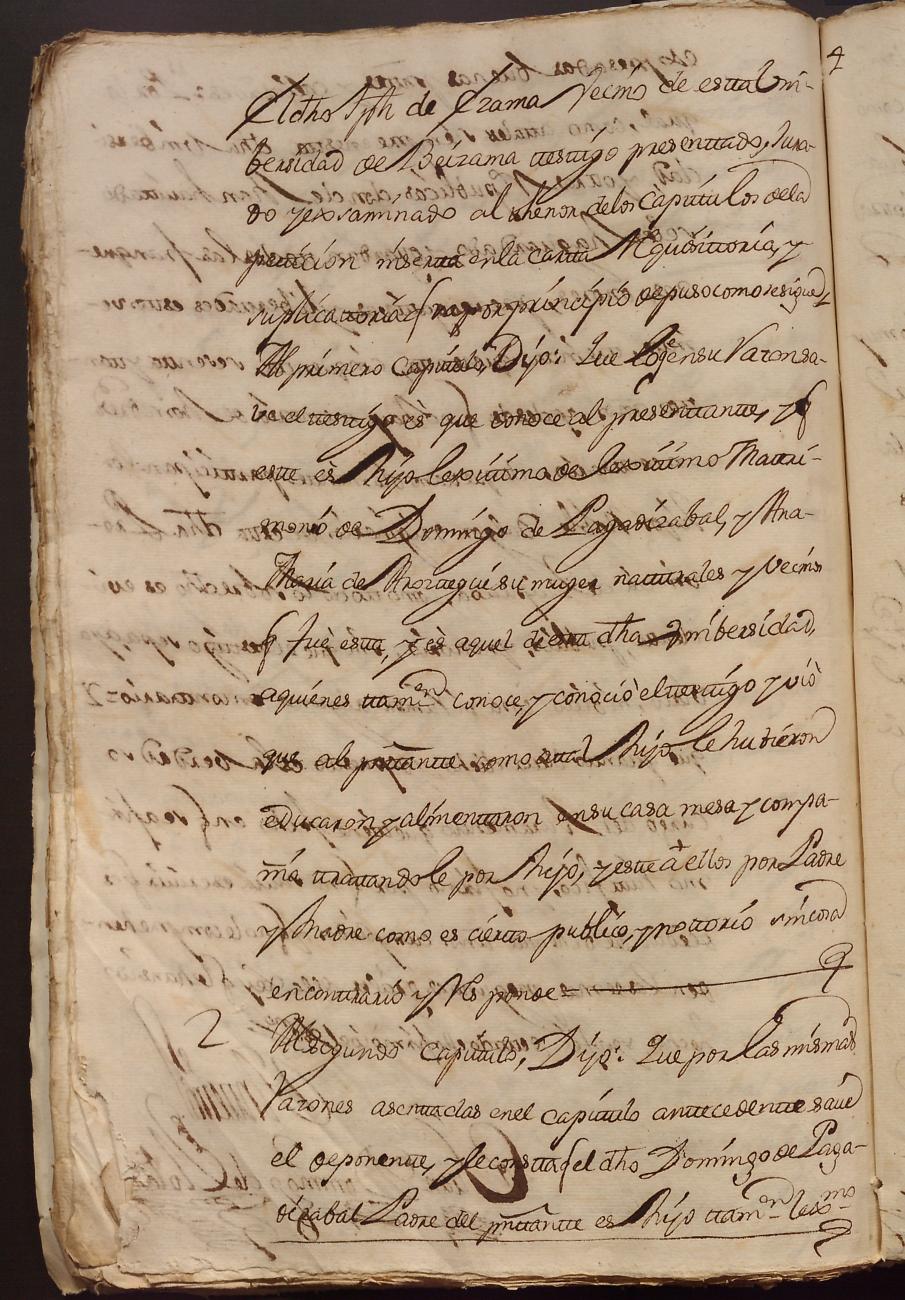 4
El dho Jph de Ezama Vecino de esta Uni-
bersidad de Beizama testigo presentado, Jura-
do y examinado al thenor de los Capitulos de la
peticion inserta en la carta Requisitoria, y
suplicattoria por principio depuso como se sigue
Al primero Capitulo, Dijo: Que lo que en su Razon sa-
ve el testigo es que conoce al presentante, y q
este es hijo lexitimo de lexitimo Matri-
monio de Domingo de Lagadizabal, y Ana
Maria de Aroztegui su muger naturales y Vecins
q fue esta, y es aquel de esta dha Unibersidad,
a quienes tamen conoce, y conoció el testigo y vió
que al prntante como a tal hijo le hubieron
educaron y alimentaron en su casa mesa y compa-
ñia tratandole por hijo, y este á ellos por Padre
y Madre como es cierto publico, y notorio sin cosa
en contrario y Responde
2 Al Segundo Capitulo, Dijo: Que por las mismas
Razones asentadas en el capitulo antecedente save
el deponente, y le consta q el dho Domingo de Laga-
dizabal Padre del prntante es hijo tamen lexmo